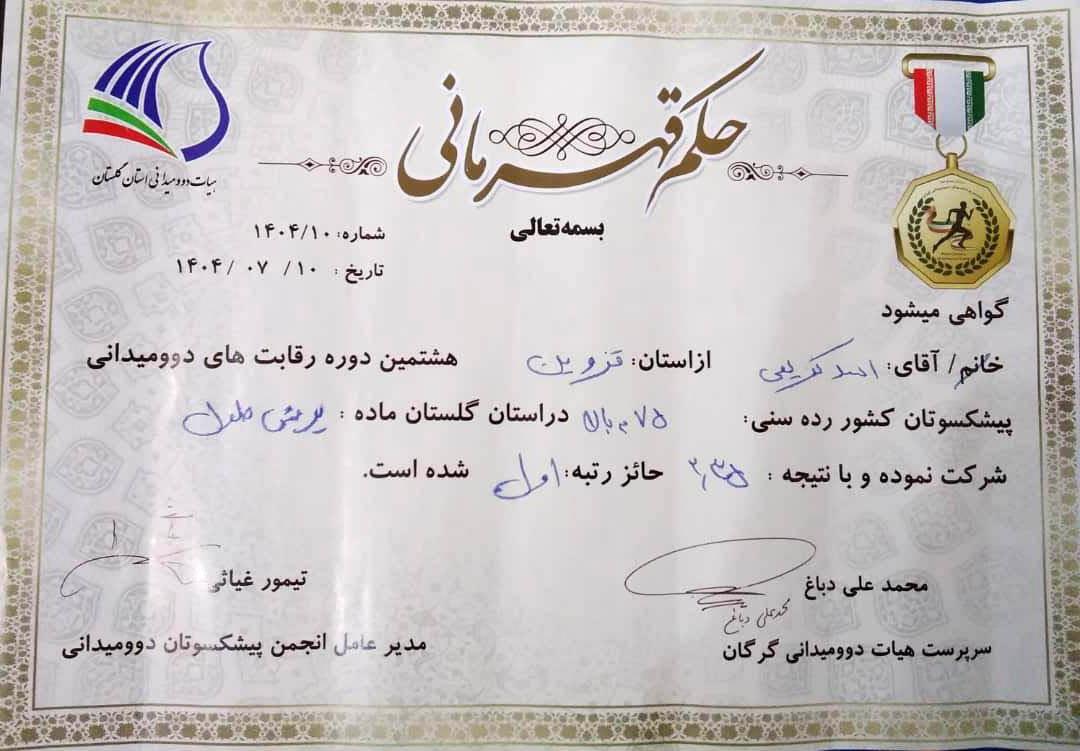 حکم قهرمانی
هیات دوومیدانی استان گلستان
بسمه‌تعالی
شماره: ۱۴۰۴/۱۰
تاریخ : ۱۴۰۴/ ۰۷ /۱۰
گواهی میشود
خانم/ آقای: اسد کریمی ازاستان: قزوین هشتمین دوره رقابت های دوومیدانی
پیشکسوتان کشور رده سنی: ۷۵ به بالا دراستان گلستان ماده : پرش طول
شرکت نموده و با نتیجه : ۲٫۳۵ حائز رتبه: اول شده است.
محمد علی دباغ
محمدعلی دباغ
سرپرست هیات دوومیدانی گرگان
تیمور غیاثی
مدیر عامل انجمن پیشکسوتان دوومیدانی